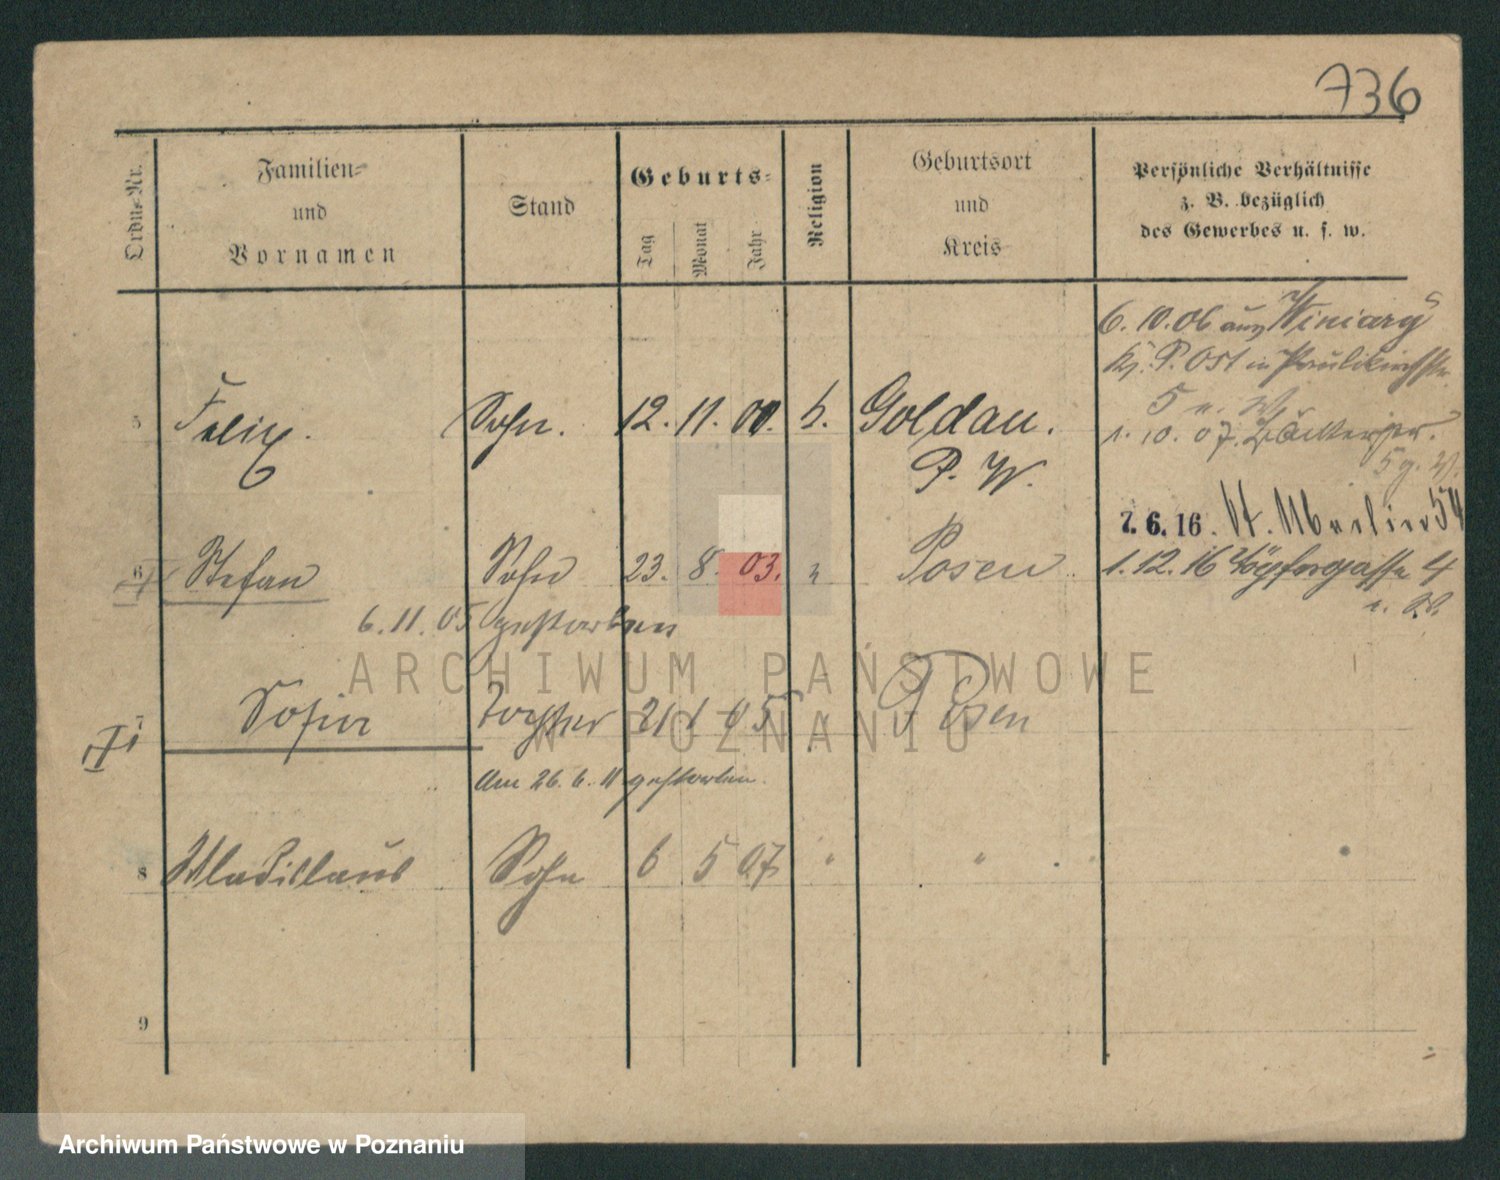 736
Ordn.-Nr.
Familien-
und
Vornamen
Stand
Geburts-
Tag
Monat
Jahr
Religion
Geburtsort
und
Kreis
Persönliche Verhältnisse
z. B. bezüglich
des Gewerbes u. s. w.
6. 10. 06 aus Winiary
Kr. P. Ost in Paulikirchstr.
5
5 Felix. Sohn. 12. 11. 00. k. Goldau.
P. W.
1. 10. 07. Bäckerstr.
5
7. 6. 16. St. Martin 54
6 Stefan Sohn 23. 8. 03. " Posen
1. 12. 16 Töpfergasse 4
6. 11. 05 gestorben
7 Sofia Tochter 21 1 05 " Posen
Am 26. 6. 11 gestorben.
8 Wladislaus Sohn 6 5 07 " "
9
ARCHIWUM PAŃSTWOWE
W POZNANIU
Archiwum Państwowe w Poznaniu